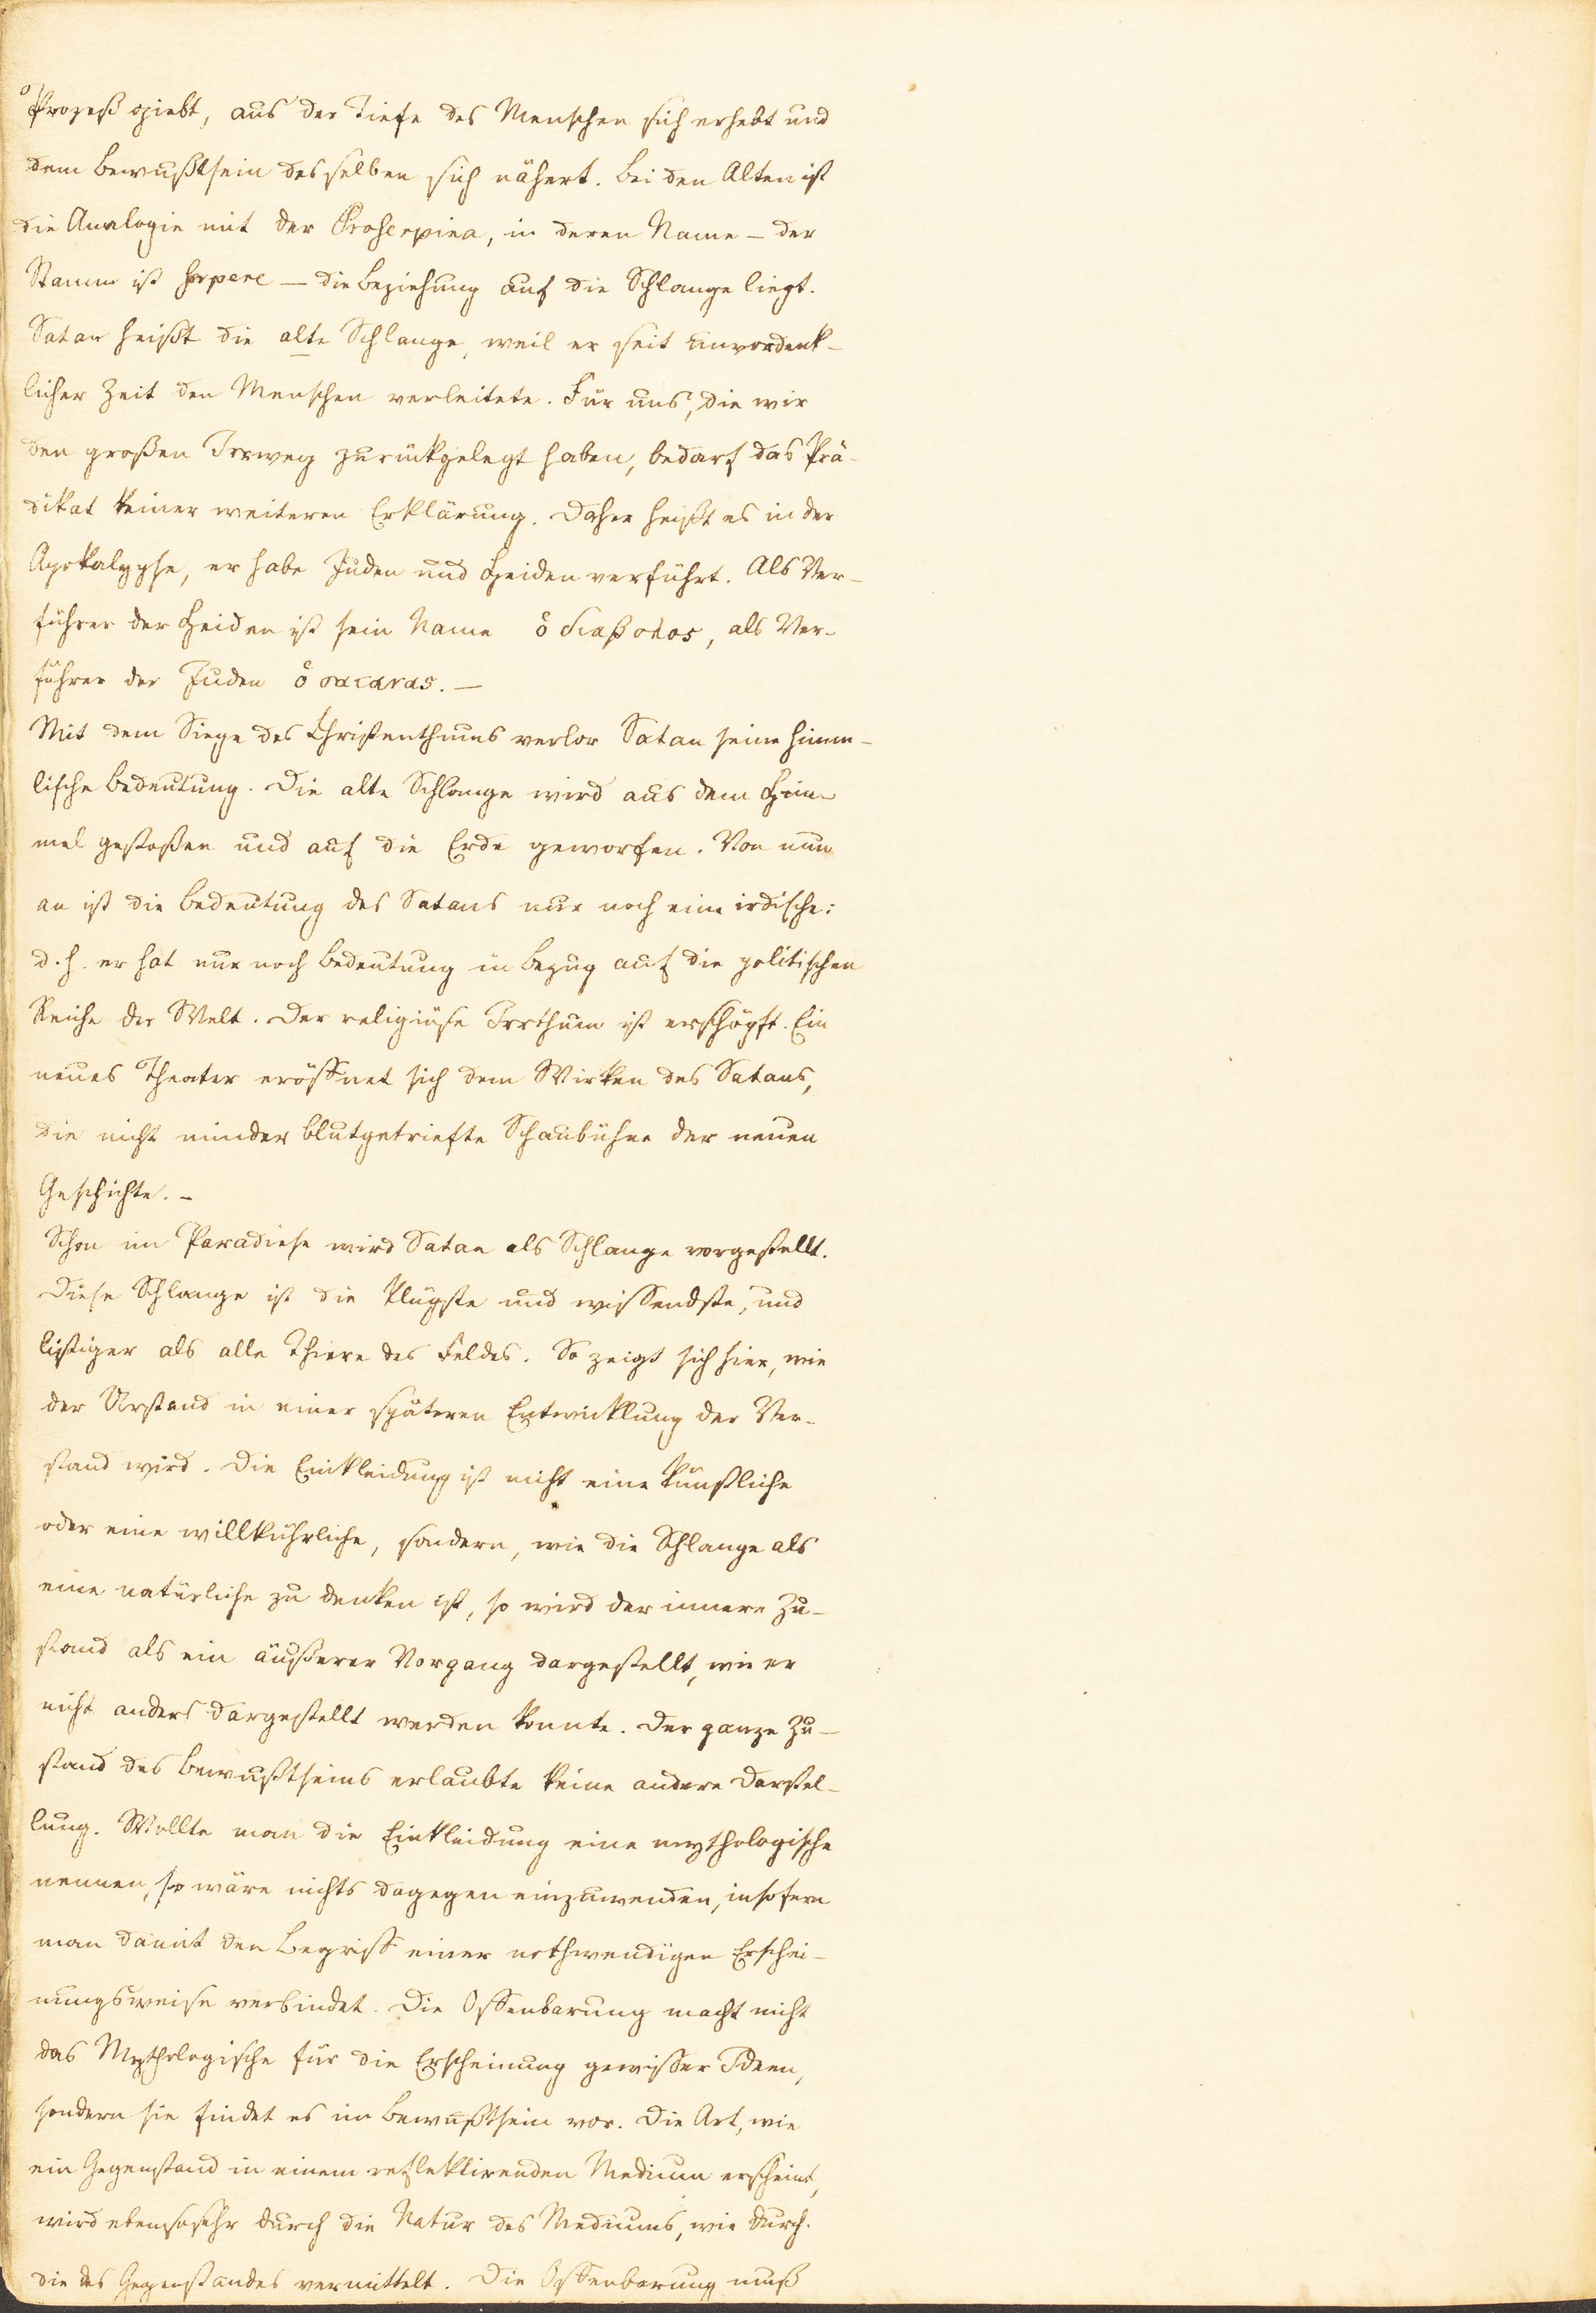 Prozeß giebt, aus der Tiefe des Menschen sich erhebt und
dem Bewußtsein desselben sich nähert. Bei den Alten ist
die Analogie mit der Proserpina, in deren Name – der
Stamm ist serpere – die Beziehung auf die Schlange liegt.
Satan heißt die alte Schlange, weil er seit unvordenk-
licher Zeit den Menschen verleitete. Für uns, die wir
den großen Irrweg zurückgelegt haben, bedarf das Prä-
dikat keiner weiteren Erklärung. Daher heißt es in der
Apokalypse, er habe Juden und Heiden verführt. Als Ver-
führer der Heiden ist sein Name ὁ διαβολος, als Ver-
führer der Juden ὁ σατανας. –
Mit dem Siege des Christenthums verlor Satan seine himm-
lische Bedeutung. Die alte Schlange wird aus dem Him-
mel gestoßen und auf die Erde geworfen. Von nun
an ist die Bedeutung des Satans nur noch eine irdische:
d. h. er hat nur noch Bedeutung in Bezug auf die politischen
Reiche der Welt. Der religiöse Irrthum ist erschöpft. Ein
neues Theater eröffnet sich dem Wirken des Satans,
die nicht minder blutgetriefte Schaubühne der neuen
Geschichte. –
Schon im Paradiese wird Satan als Schlange vorgestellt.
Diese Schlange ist die klügste und wissendste, und
listiger als alle Thiere des Feldes. So zeigt sich hier, wie
der Urstand in einer späteren Entwicklung der Ver-
stand wird. Die Einkleidung ist nicht eine künstliche
oder eine willkührliche, sondern, wie die Schlange als
eine natürliche zu denken ist, so wird der innere Zu-
stand als ein äußerer Vorgang dargestellt, wie er
nicht anders dargestellt werden konnte. Der ganze Zu-
stand des Bewußtseins erlaubte keine andere Darstel-
lung. Wollte man die Einkleidung eine mythologische
nennen, so wäre nichts dagegen einzuwenden, insofern
man damit den Begriff einer nothwendigen Erschei-
nungsweise verbindet. Die Offenbarung macht nicht
das Mythologische für die Erscheinung gewisser Ideen,
sondern sie findet es im Bewußtsein vor. Die Art, wie
ein Gegenstand in einem reflektirenden Medium erscheint,
wird ebensosehr durch die Natur des Mediums, wie durch
die des Gegenstandes vermittelt. Die Offenbarung muß